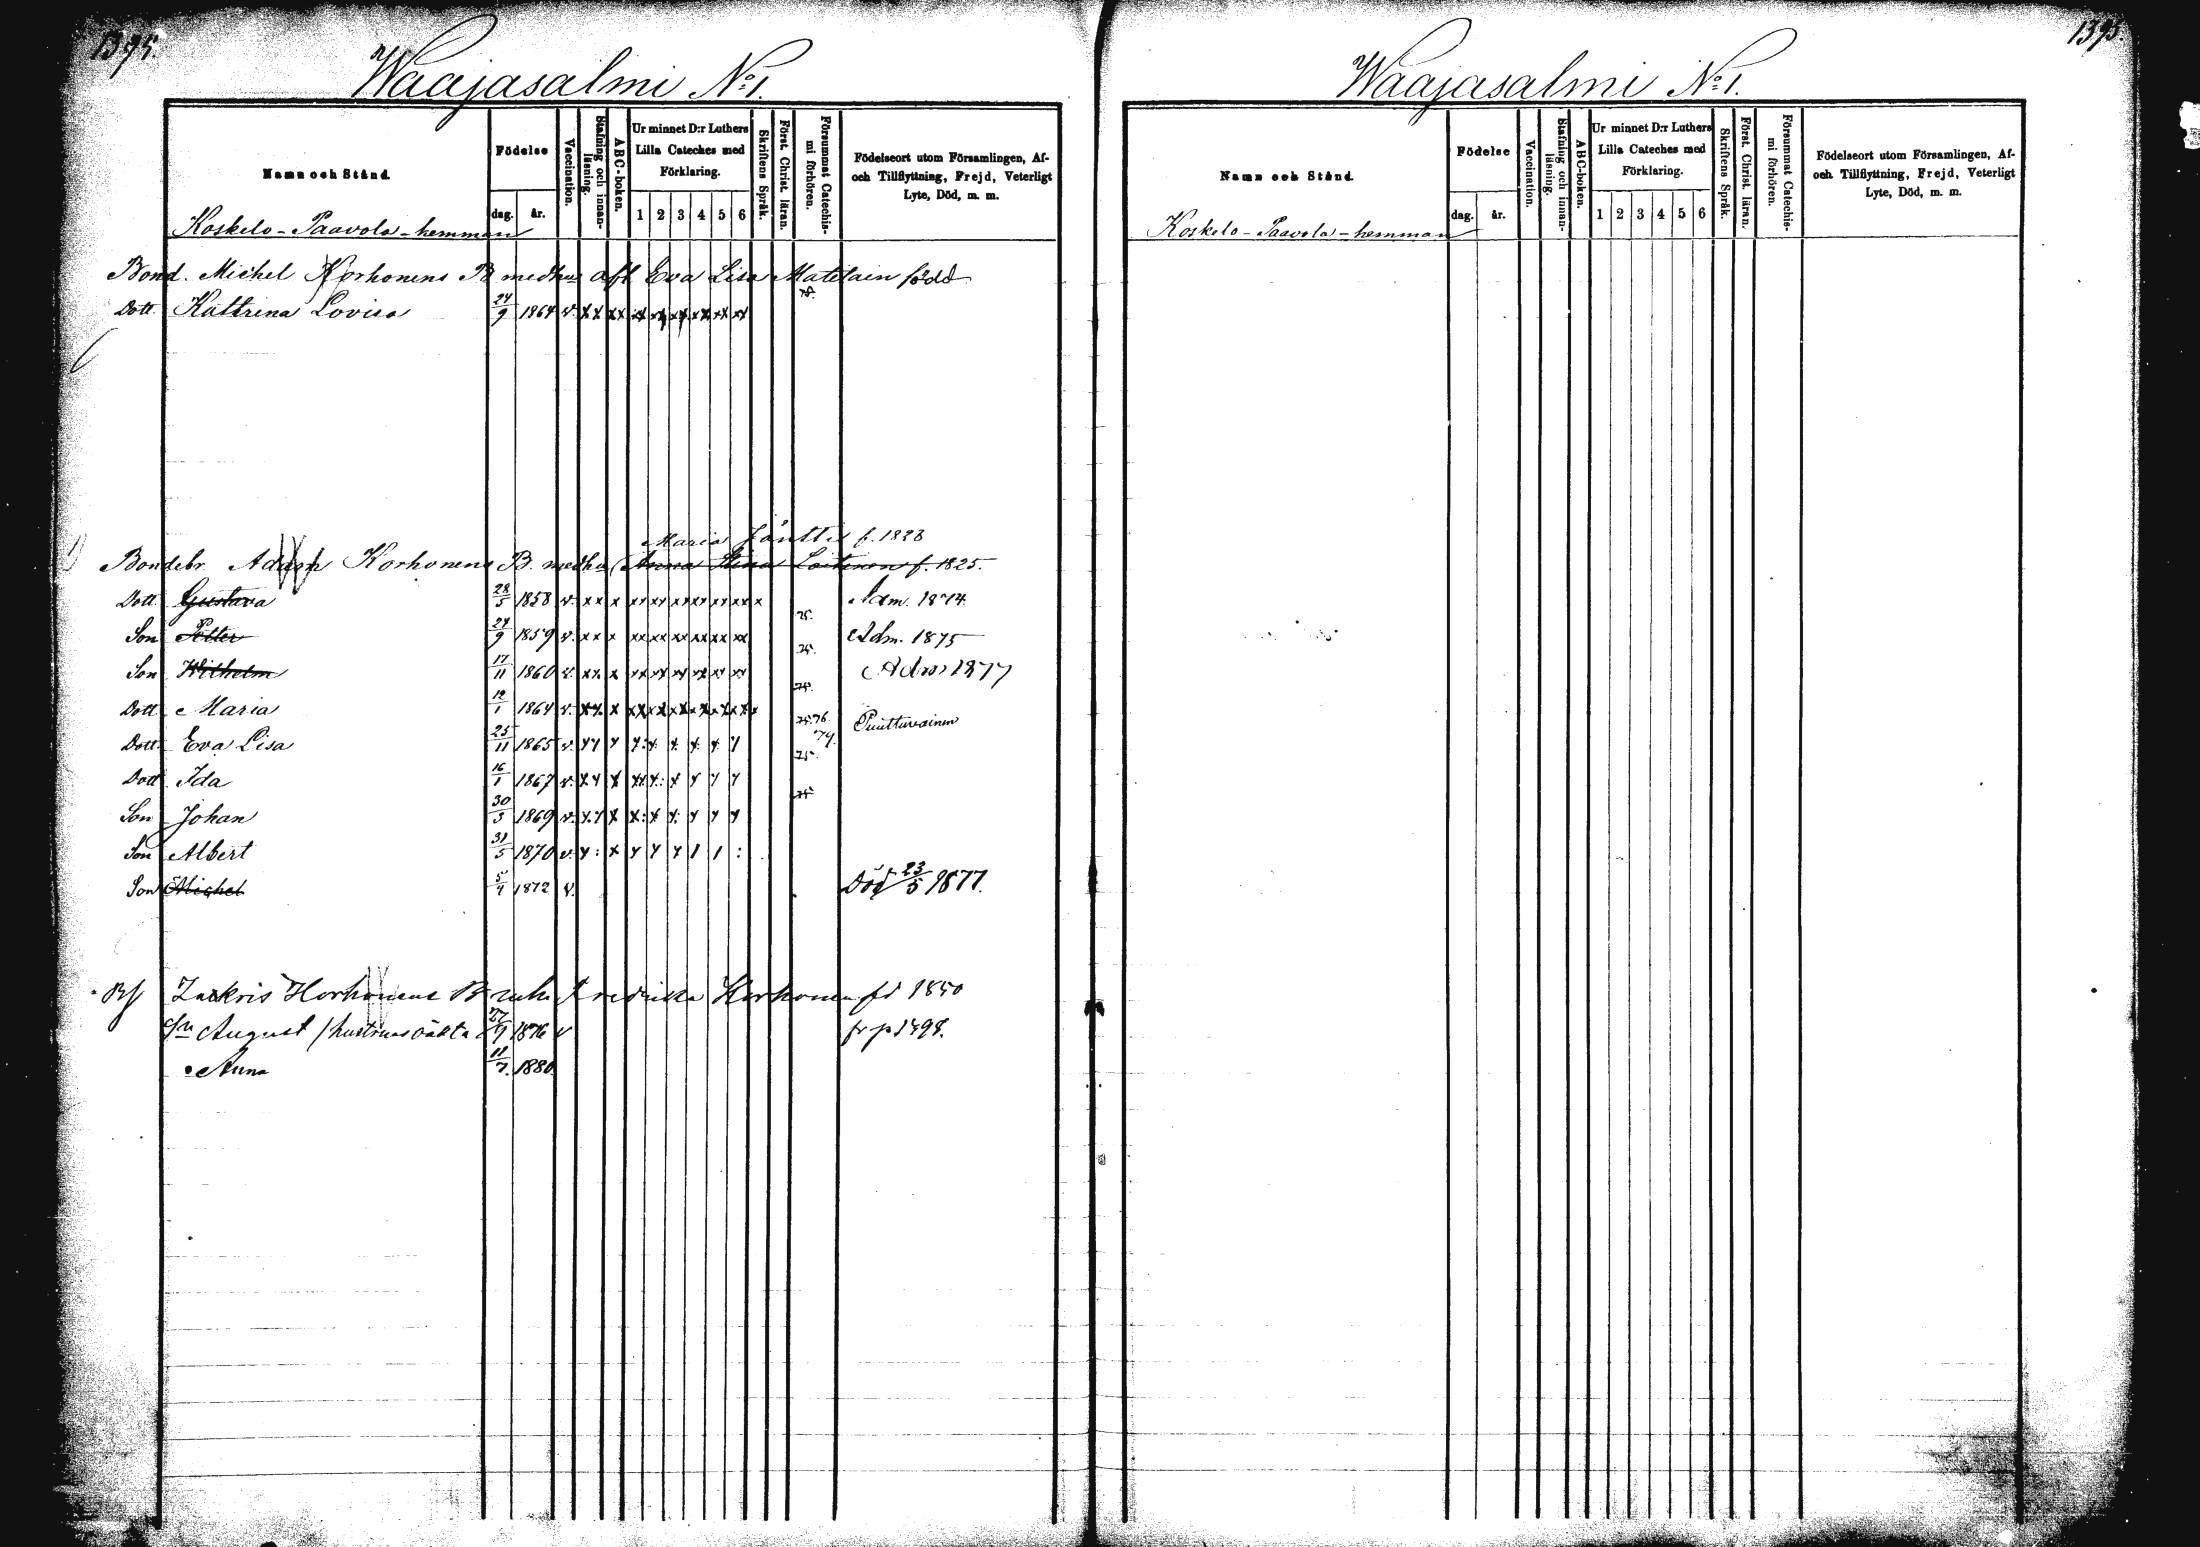 1395.
Waajasalmi No 1.
Namn och Stånd.
Födelse
dag. år.
Vaccination.
Stafning och innan-läsning.
ABC-boken.
Ur minnet D:r Luthers Lilla Cateches med Förklaring.
1 2 3 4 5 6
Skriftens Språk.
Förat. Christ. läran.
Försummat Catechis-mi förhören.
Födelseort utom Församlingen, Af- och Tillflyttning, Frejd, Veterligt Lyte, Död, m. m.
Koskelo-Paavola-hemman
Bond. Michel Korhonens B medhu afl Eva Lisa Matilain född
Dott. Kattrina Lovisa 24/9 1864 v.
Maria Jäntti f. 1828
Bondebr. Adam Korhonens B. medhu Anna Stina f. 1825.
Dott. Gustava 28/5 1858 v. Adm. 1874
Son Petter 24/9 1859 v. 75. Adm. 1875
Son Wilhelm 17/11 1860 v. 75. Adm 1877
Dott. Maria 12/1 1864 v. 75.
Dott. Eva Lisa 25/11 1865 v. 75. 76. 79.
Dott. Ida 16/1 1867 v. 75.
Son Johan 30/3 1869 v. 75
Son Albert 31/5 1870 v.
Son Michel 5/4 1872 v. Död 23/5 1877.
Zakris Korhonens B Fredrika Korhonen fd 1850
August /hustruns oäkta 27/9 1876 v fr p 1498.
Anna 11/7. 1880.
1395.
Waajasalmi No 1.
Namn och Stånd.
Födelse
dag. år.
Vaccination.
Stafning och innan-läsning.
ABC-boken.
Ur minnet D:r Luthers Lilla Cateches med Förklaring.
1 2 3 4 5 6
Skriftens Språk.
Förat. Christ. läran.
Försummat Catechis-mi förhören.
Födelseort utom Församlingen, Af- och Tillflyttning, Frejd, Veterligt Lyte, Död, m. m.
Koskelo-Paavola-hemman